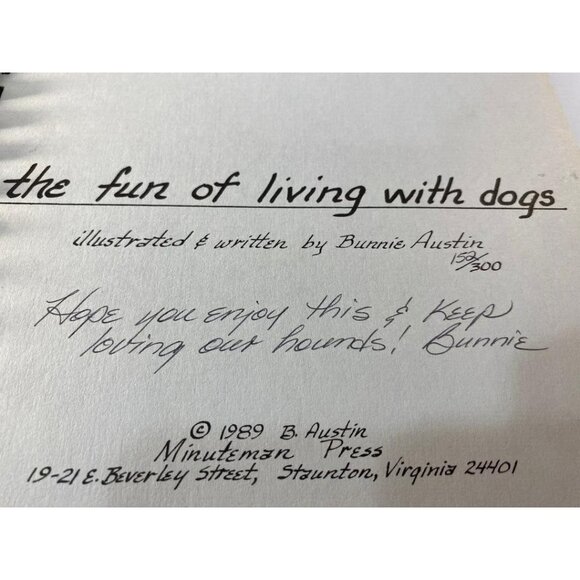 the fun of living with dogs
illustrated & written by Bunnie Austin
152/300
Hope you enjoy this & Keep
loving our hounds! Bunnie
© 1989 B. Austin
Minuteman Press
19-21 E. Beverley Street, Staunton, Virginia 24401